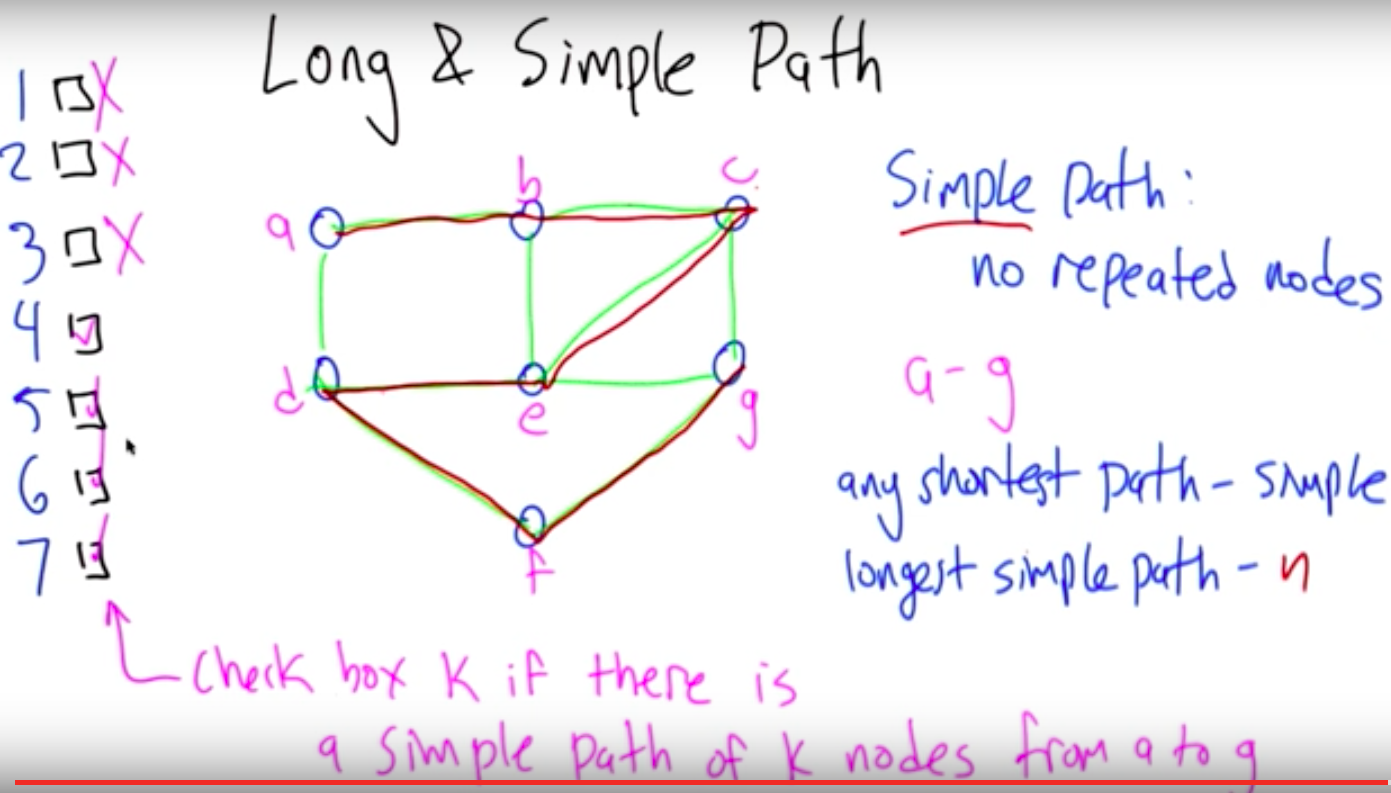 Long & Simple Path
1 X
2 X
3 X
4
5
6
7
a
b
c
d
e
g
f
Simple path:
no repeated nodes
a-g
any shortest path - simple
longest simple path - n
check box k if there is
a simple path of k nodes from a to g